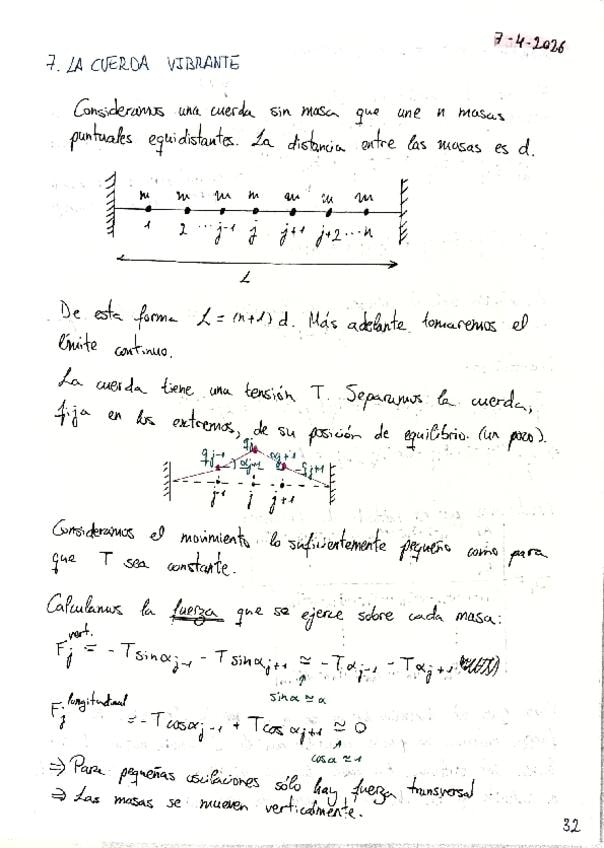 7-4-2026
7. LA CUERDA VIBRANTE
Consideramos una cuerda sin masa que une n masas
puntuales equidistantes. La distancia entre las masas es d.
m m m m m m m
1 2 ... j-1 j j+1 j+2 ... n
L
De esta forma L = (n+1) d. Más adelante tomaremos el
límite continuo.
La cuerda tiene una tensión T. Separamos la cuerda,
fija en los extremos, de su posición de equilibrio. (un poco).
qj-1 αj-1 qj αj+1 qj+1
j-1 j j+1
Consideramos el movimiento lo suficientemente pequeño como para
que T sea constante.
Calculamos la fuerza que se ejerce sobre cada masa:
Fj vert. = - T sinαj-1 - T sinαj+1 ≃ -Tαj-1 - Tαj+1
sinα ≃ α
Fj longitudinal = -T cosαj-1 + T cosαj+1 ≃ 0
cosα ≃ 1
⇒ Para pequeñas oscilaciones sólo hay fuerza transversal
⇒ Las masas se mueven verticalmente.
32